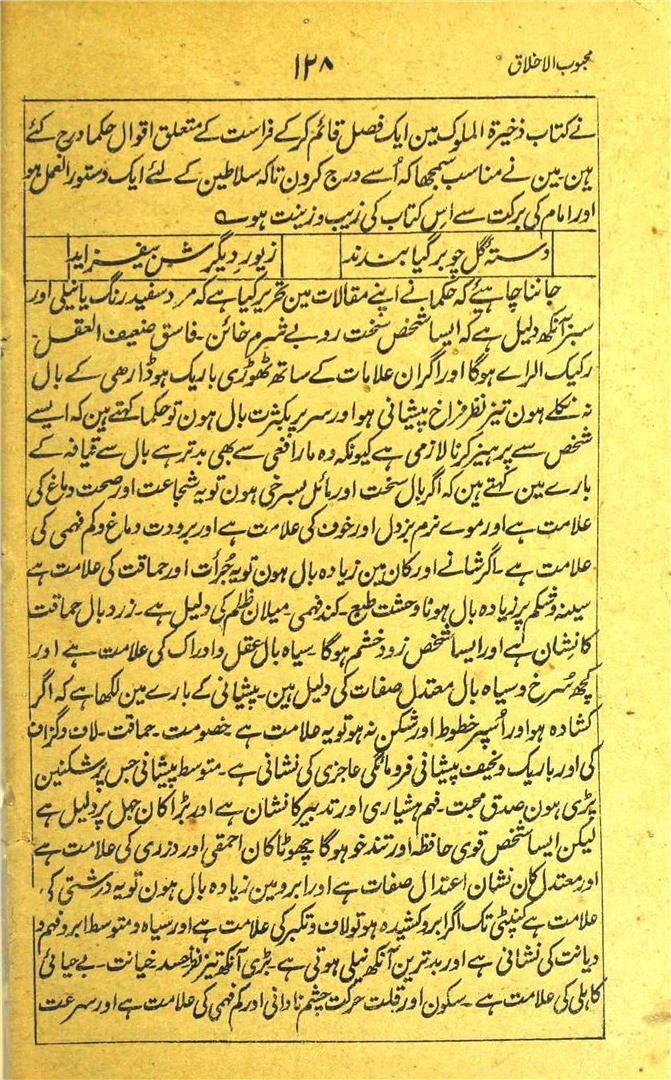 محبوب الاخلاق
۱۲۸
نے کتاب ذخیرۃ الملوک مین ایک فصل قائم کرکے فراست کے متعلق اقوال حکما درج کئے
ہین۔ مین نے مناسب سمجھا کہ اُسے درج کرون تاکہ سلاطین کے لئے ایک دستور العمل ہو
اور امام کی برکت سے اس کتاب کی زیب و زینت ہو۔
دستۂ گل چو بر گیا بندند زیور دیگرش بیفزاید
جاننا چاہیئے کہ حکما نے اپنے مقالات مین تحریر کیا ہے کہ مرد سفید رنگ یا نیلی اور
سبز آنکھ دلیل ہے کہ ایسا شخص سخت رو بے شرم خائن۔ فاسق ضعیف العقل۔
رکیک الرائے ہوگا اور اگر ان علامات کے ساتھ ٹھوڑی باریک ہو ڈاڑھی کے بال
نہ نکلے ہون تیز نظر فراخ پیشانی ہو اور سر پر بکثرت بال ہون تو حکما کہتے ہین کہ ایسے
شخص سے پرہیز کرنا لازمی ہے کیونکہ وہ مار افعی سے بھی بدتر ہے بال سے قیافہ کے
بارے مین کہتے ہین کہ اگر بال سخت اور مائل بسرخی ہون تو یہ شجاعت اور صحت دماغ کی
علامت ہے اور موے نرم بزدل اور خوف کی علامت ہے اور برودت دماغ و کم فہمی کی
علامت ہے۔ اگر شانے اور کان مین زیادہ بال ہون تو یہ جرأت اور حماقت کی علامت ہے
سینہ و شکم پر زیادہ بال ہونا وحشت طبع۔ کند فہمی۔ میلان ظلم کی دلیل ہے۔ زرد بال حماقت
کا نشان ہے اور ایسا شخص زود خشم ہوگا۔ سیاہ بال عقل و ادراک کی علامت ہے اور
کچھ سُرخ و سیاہ بال معتدل صفات کی دلیل ہین۔ پیشانی کے بارے مین لکھا ہے کہ اگر
کشادہ ہو اور اُسپر خطوط اور شکن نہ ہو تو یہ علامت ہے خصومت۔ حماقت۔ لاف و گزاف
کی اور باریک و نحیف پیشانی فرومائگی عاجزی کی نشانی ہے۔ متوسط پیشانی جس پر شکنین
پڑی ہون صدق محبت۔ فہم ہشیاری اور تدبیر کا نشان ہے اور بڑا کان جہل پر دلیل ہے
لیکن ایسا شخص قوی حافظہ اور تند خو ہوگا چھوٹا کان احمقی اور دزدی کی علامت ہے
اور معتدل کان نشان اعتدال صفات ہے اور ابرو مین زیادہ بال ہون تو یہ درشتی کی
علامت ہے کنپٹی تک اگر ابرو کشیدہ ہو تو لاف و تکبر کی علامت ہے اور سیاہ و متوسط ابرو فہم و
دیانت کی نشانی ہے اور بدترین آنکھ نیلی ہوتی ہے۔ بڑی آنکھ تیز نظر حسد۔ خیانت۔ بے حیائی
کاہلی کی علامت ہے۔ سکون اور قلت حرکت چشم نادانی اور کم فہمی کی علامت ہے اور سرعت